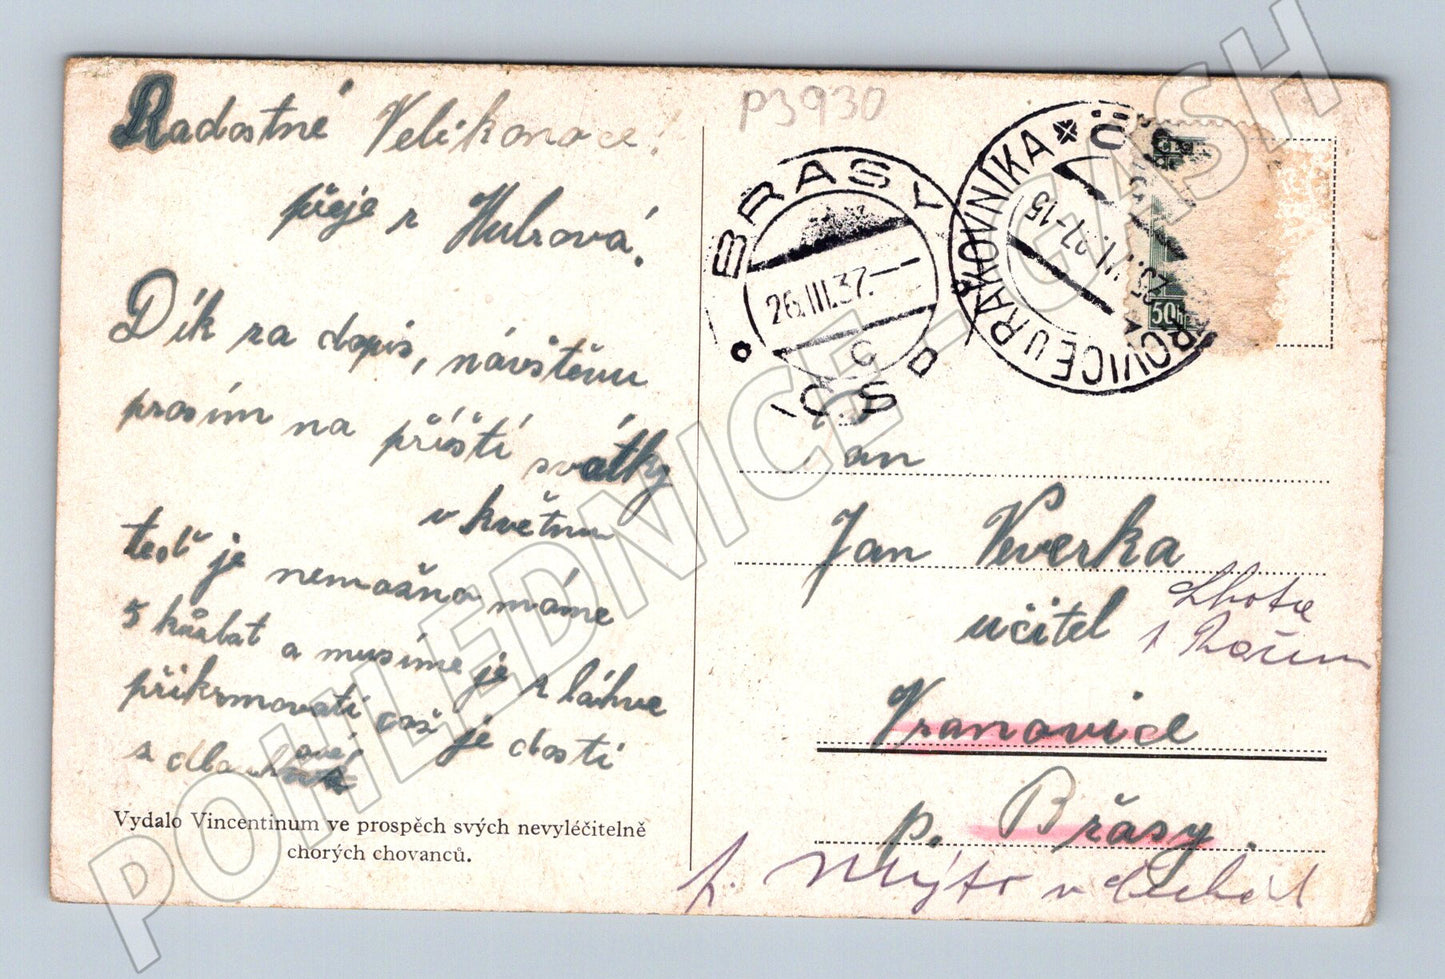 Radostné Velikonoce!
přeje r Hubrová.
Dík za dopis, návštěvu
prosím na příští svátky
v květnu
teď je nemožno máme
5 kůzlat a musíme je z láhve
přikrmovati což je dosti
zdlouhavé
Vydalo Vincentinum ve prospěch svých nevyléčitelně
chorých chovanců.
P3930
BRASY
26.III.37.
C
ČSR
ROVICE U RAKOVNÍKA
37-15
50h
Pan
Jan Veverka
učitel
Lhota
Vranovice
p. Břasy.
p. Mýto
POHLEDNICE - CASH